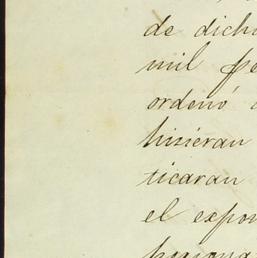 de dich
mil pe
ordenó
hiciéran
ticaran
el expo